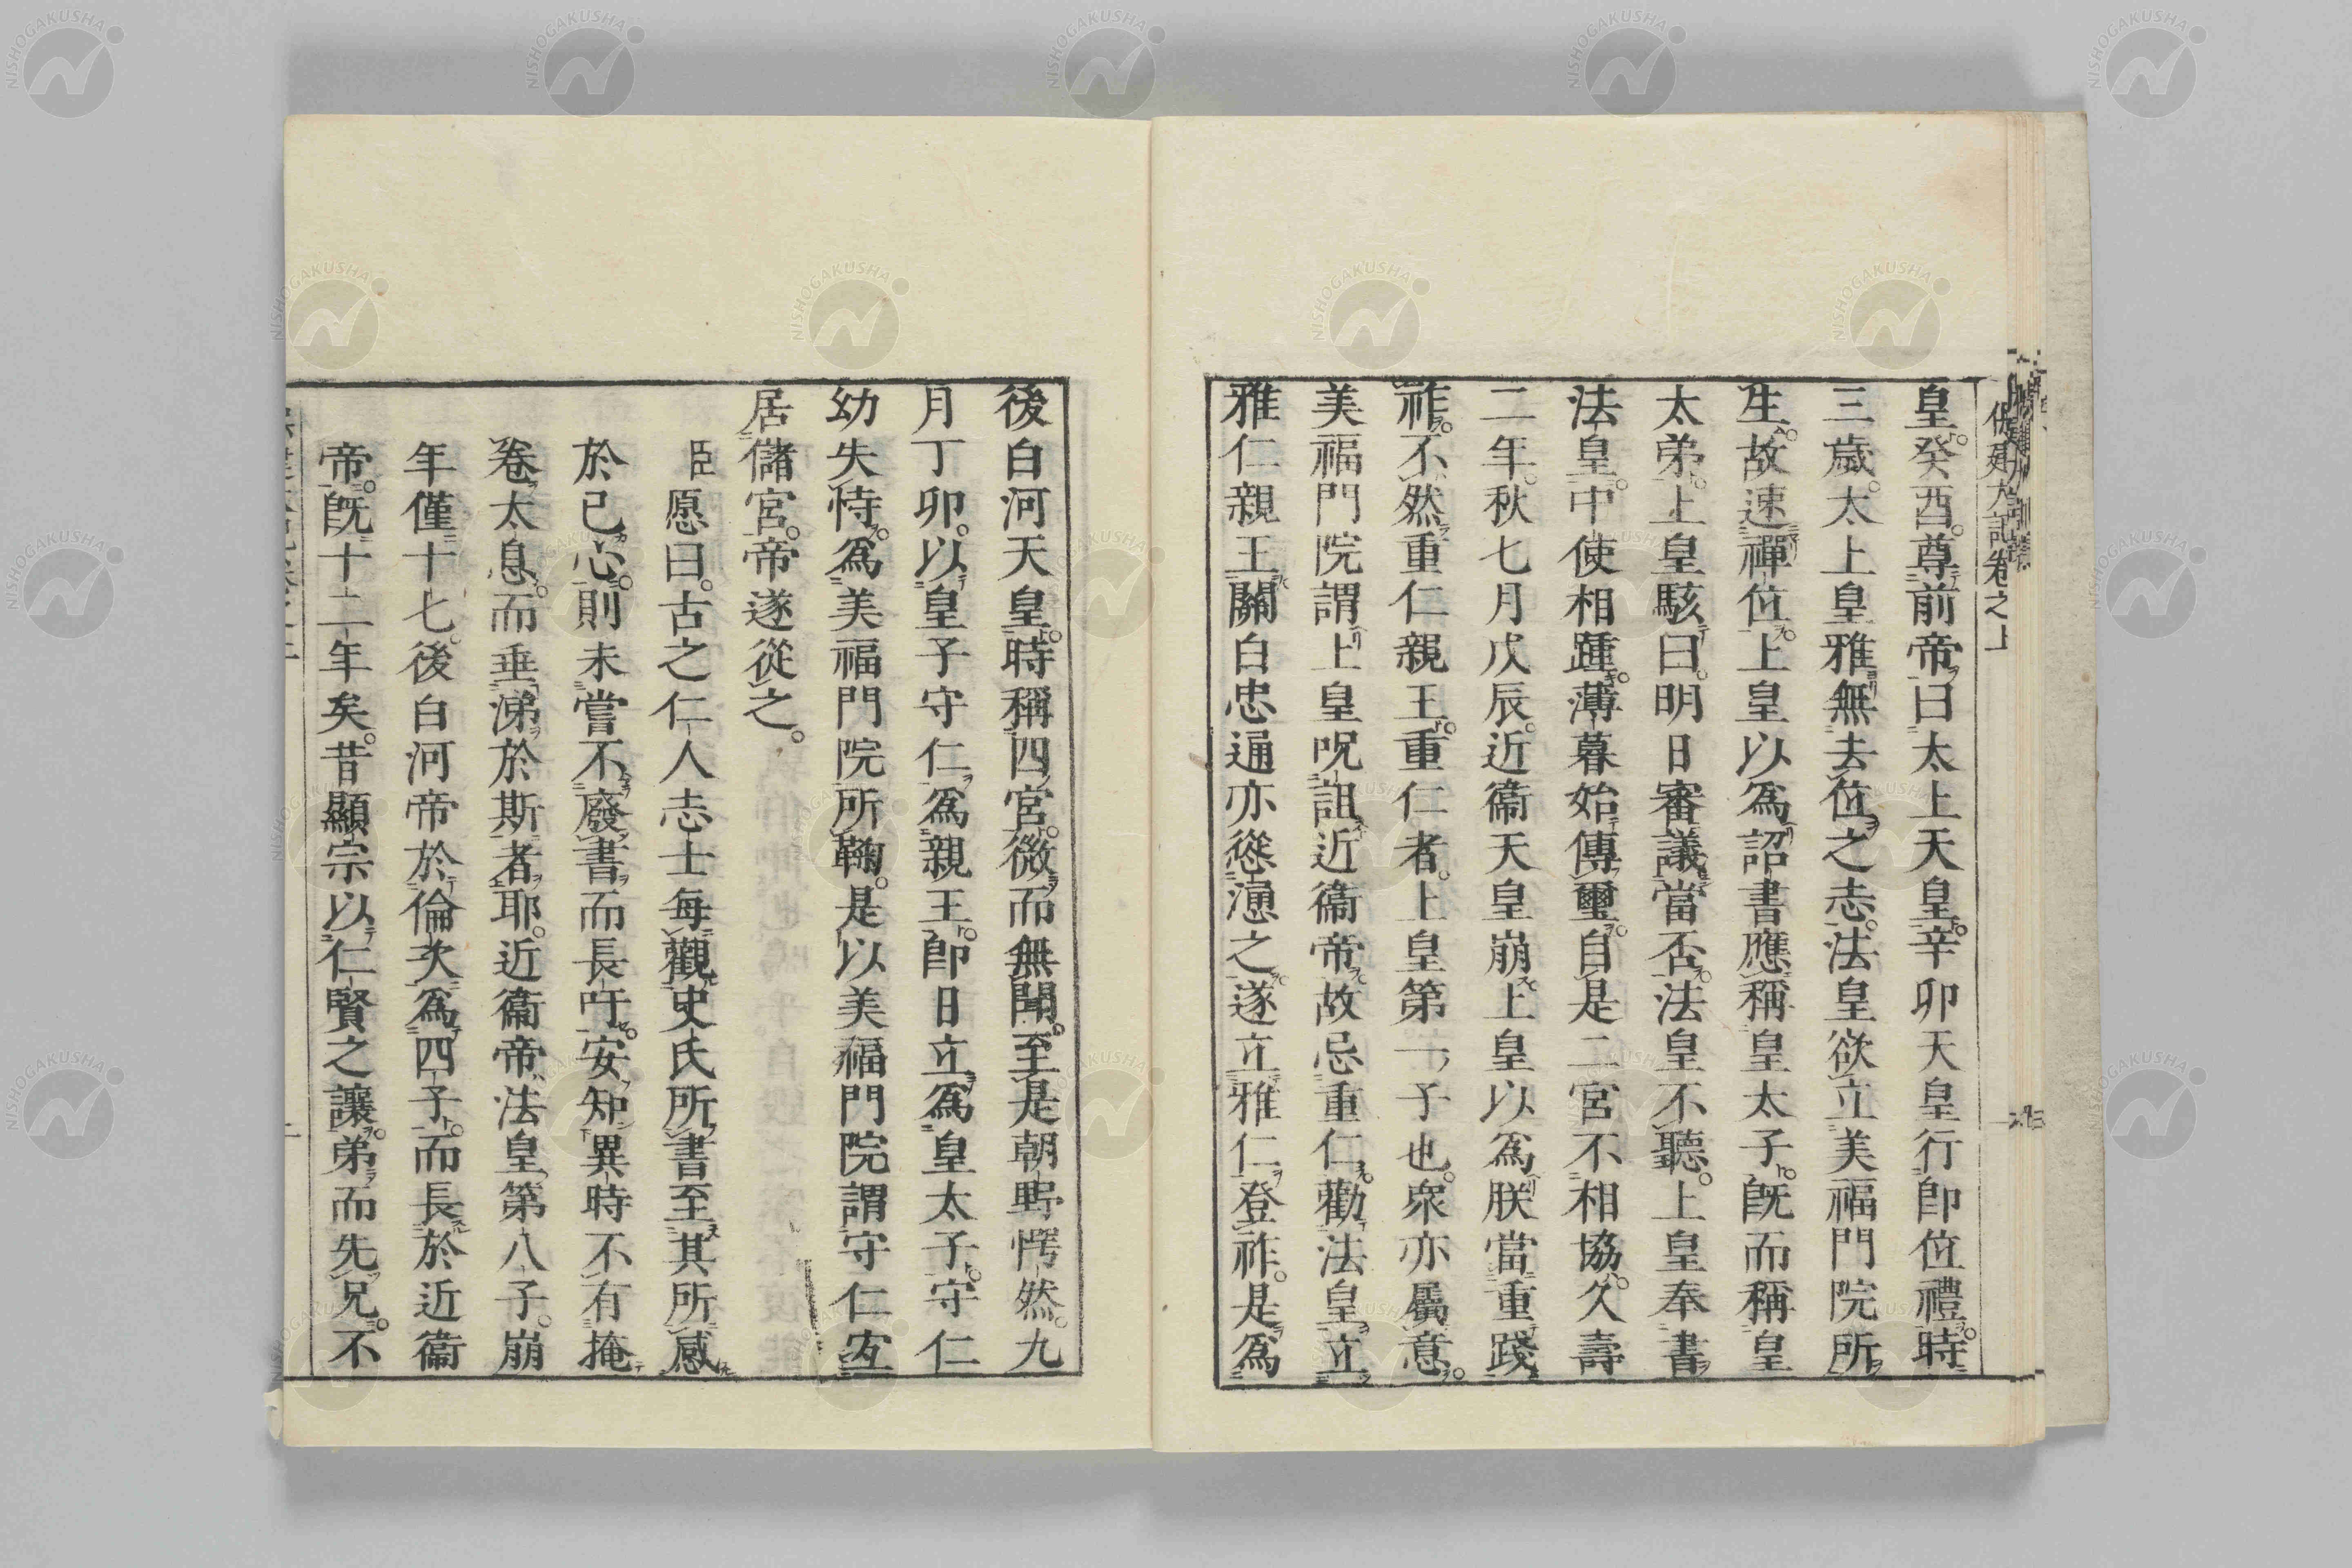 保建大記卷之上
皇癸酉尊前帝曰太上天皇辛卯天皇行卽位禮時
三歲太上皇雅無去位之志法皇欲立美福門院所
生故速禪位上皇以爲詔書應稱皇太子旣而稱皇
太弟上皇駭曰明日審議當否法皇不聽上皇奉書
法皇中使相踵薄暮始傳璽自是二宮不相協久壽
二年秋七月戊辰近衞天皇崩上皇以爲朕當重踐
祚不然重仁親王重仁者上皇第一子也衆亦屬意
美福門院謂上皇呪詛近衞帝故忌重仁勸法皇立
雅仁親王關白忠通亦慫慂之遂立雅仁登祚是爲
後白河天皇時稱四宮微而無聞至是朝野愕然九
月丁卯以皇子守仁爲親王卽日立爲皇太子守仁
幼失恃爲美福門院所鞠是以美福門院謂守仁宜
居儲宮帝遂從之
臣愿曰古之仁人志士每觀史氏所書至其所感
於己心則未嘗不廢書而長吁安知異時不有掩
卷太息而垂涕於斯者耶近衞帝法皇第八子崩
年僅十七後白河帝於倫次爲四子而長於近衞
帝旣十二年矣昔顯宗以仁賢之讓弟而先兄不